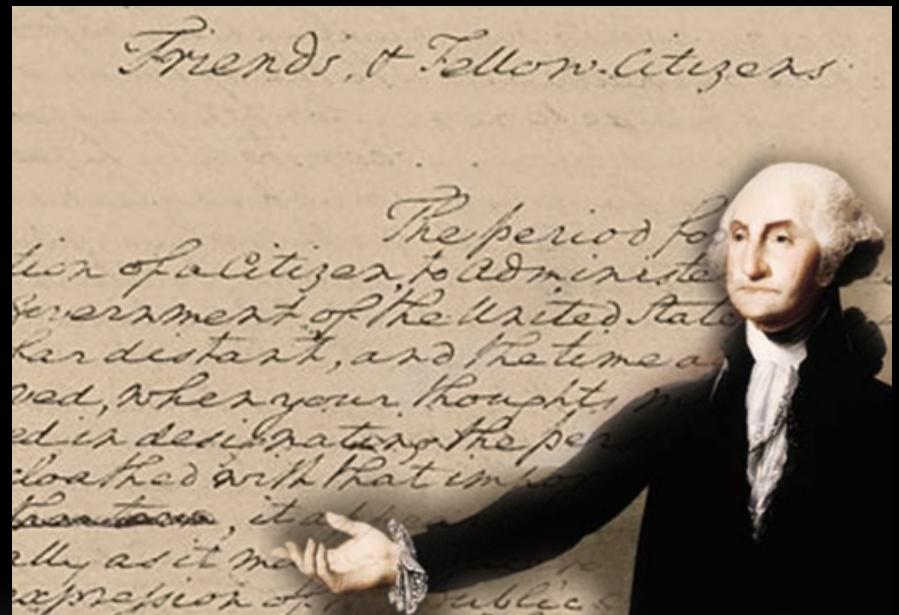 Friends, & Fellow-Citizens
The period fo
tion of a Citizen, to administe
Government of the United State
far distant, and the time a
ved, when your thoughts m
ed in designating the per
cloathed with that impor
it appear
ally as it ma
expression of public